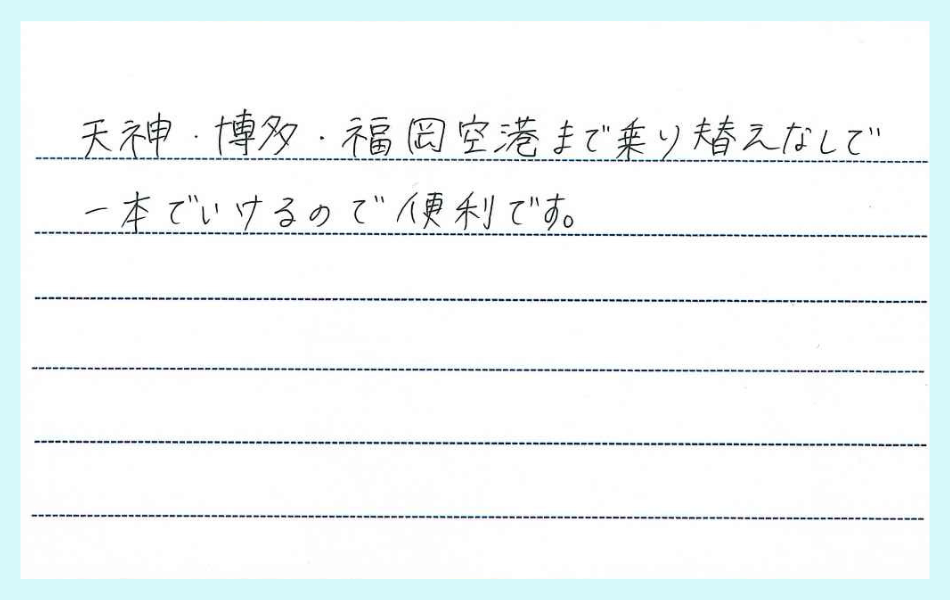 天神・博多・福岡空港まで乗り替えなしで
一本でいけるので便利です。